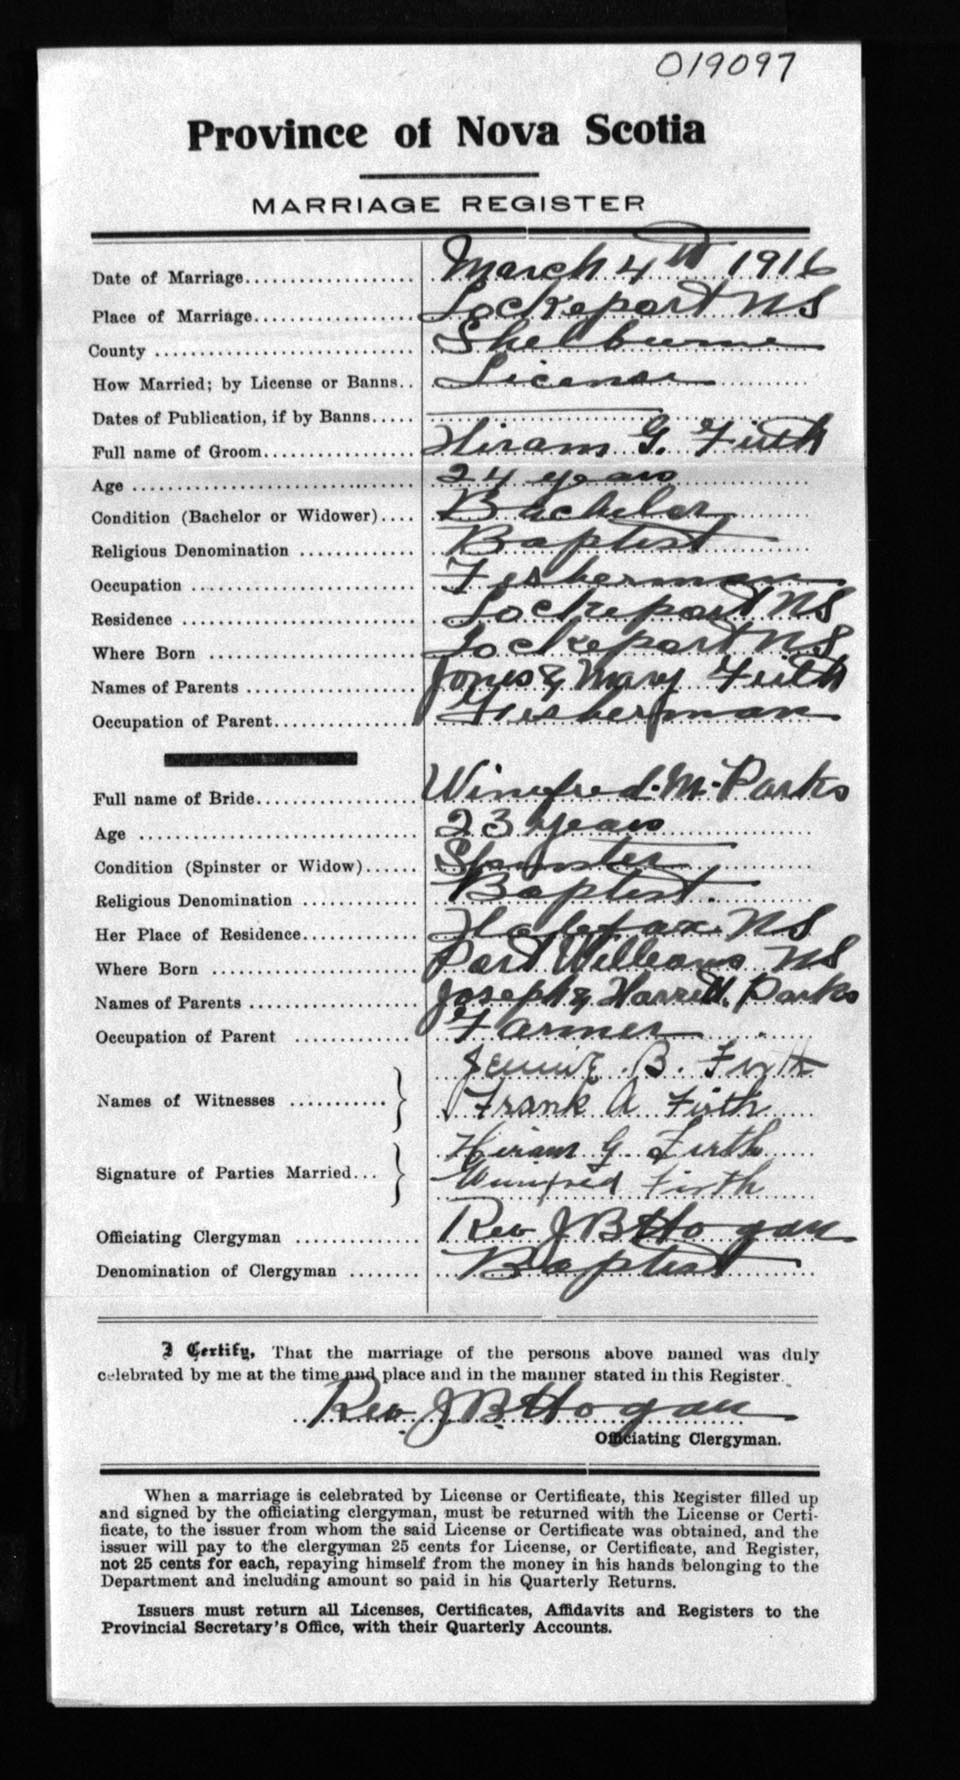 019097
Province of Nova Scotia
MARRIAGE REGISTER
Date of Marriage.................... March 4th 1916
Place of Marriage................... Lockeport NS
County ............................... Shelburne
How Married; by License or Banns.. License
Dates of Publication, if by Banns.....
Full name of Groom.................. Hiram G. Firth
Age .................................. 24 years
Condition (Bachelor or Widower).... Bachelor
Religious Denomination ............. Baptist
Occupation .......................... Fisherman
Residence ........................... Lockeport NS
Where Born ........................ Lockeport NS
Names of Parents ................... & Mary Firth
Occupation of Parent................. Fisherman
Full name of Bride................... Winefred. M. Parks
Age ................................. 23 years
Condition (Spinster or Widow)...... Spinster
Religious Denomination ............. Baptist.
Her Place of Residence............. Halifax NS
Where Born ........................ Port Williams NS
Names of Parents ................... Joseph & Parks
Occupation of Parent ............. Farmer
Jennie B. Firth
Names of Witnesses ........... } Frank A Firth
Hiram G Firth
Signature of Parties Married... } Winnifred Firth
Officiating Clergyman .............. Rev J B Hogan
Denomination of Clergyman ........ Baptist
I Certify, That the marriage of the persons above named was duly
celebrated by me at the time and place and in the manner stated in this Register.
Rev. J B Hogan
Officiating Clergyman.
When a marriage is celebrated by License or Certificate, this Register filled up
and signed by the officiating clergyman, must be returned with the License or Certi-
ficate, to the issuer from whom the said License or Certificate was obtained, and the
issuer will pay to the clergyman 25 cents for License, or Certificate, and Register,
not 25 cents for each, repaying himself from the money in his hands belonging to the
Department and including amount so paid in his Quarterly Returns.
Issuers must return all Licenses, Certificates, Affidavits and Registers to the
Provincial Secretary's Office, with their Quarterly Accounts.